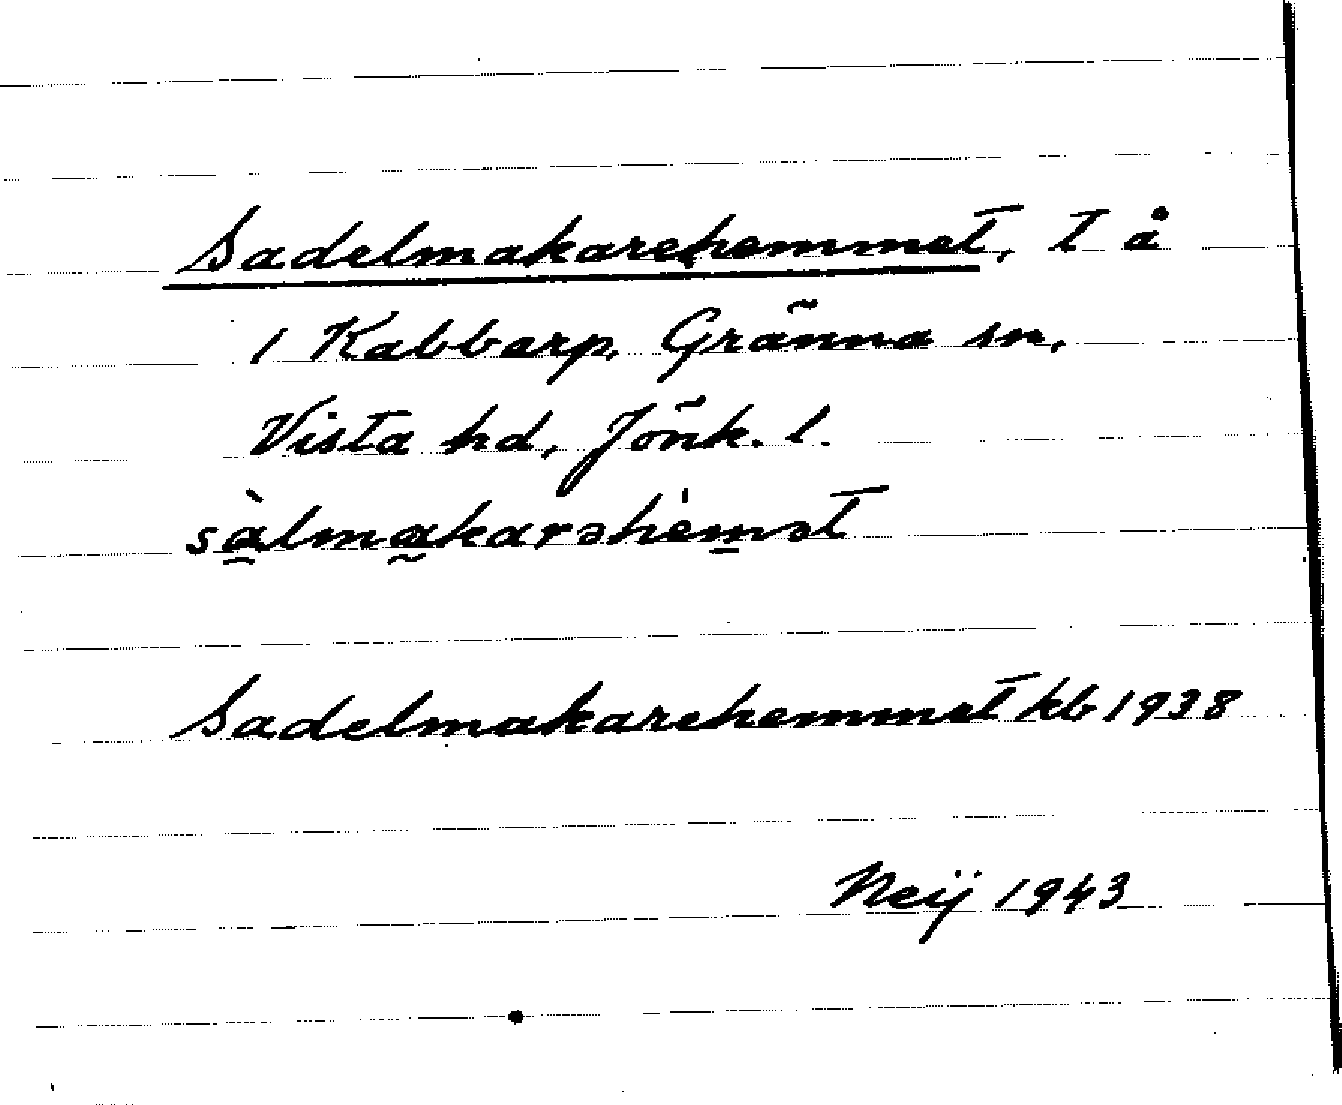 Sadelmakarehemmet, t å
i Kabbarp, Gränna sn,
Vista hd, Jönk. l.
sàlmakarəhemət
Sadelmakarehemmet kb 1938
Neij 1943